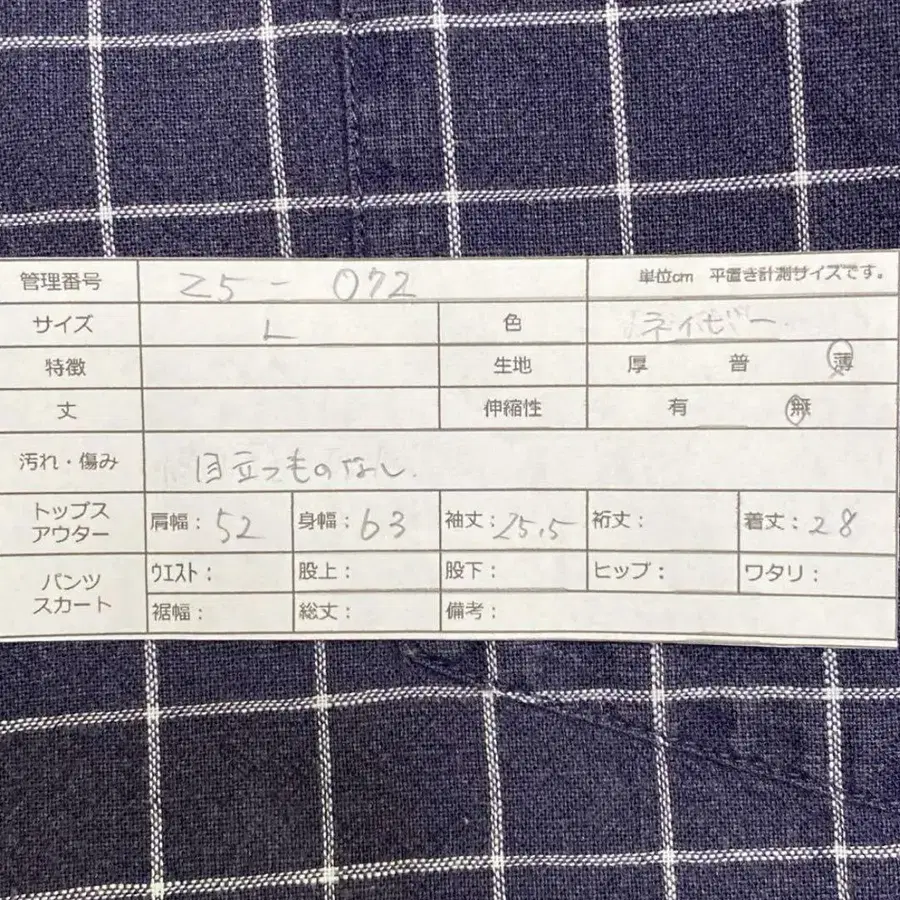 管理番号 Z5-072 単位cm 平置き計測サイズです。
サイズ L 色 ネイビー
特徴 生地 厚 普 薄
丈 伸縮性 有 無
汚れ・傷み 目立つものなし.
トップス アウター 肩幅: 52 身幅: 63 袖丈: 25.5 裄丈: 着丈: 28
パンツ スカート ウエスト: 股上: 股下: ヒップ: ワタリ:
裾幅: 総丈: 備考: